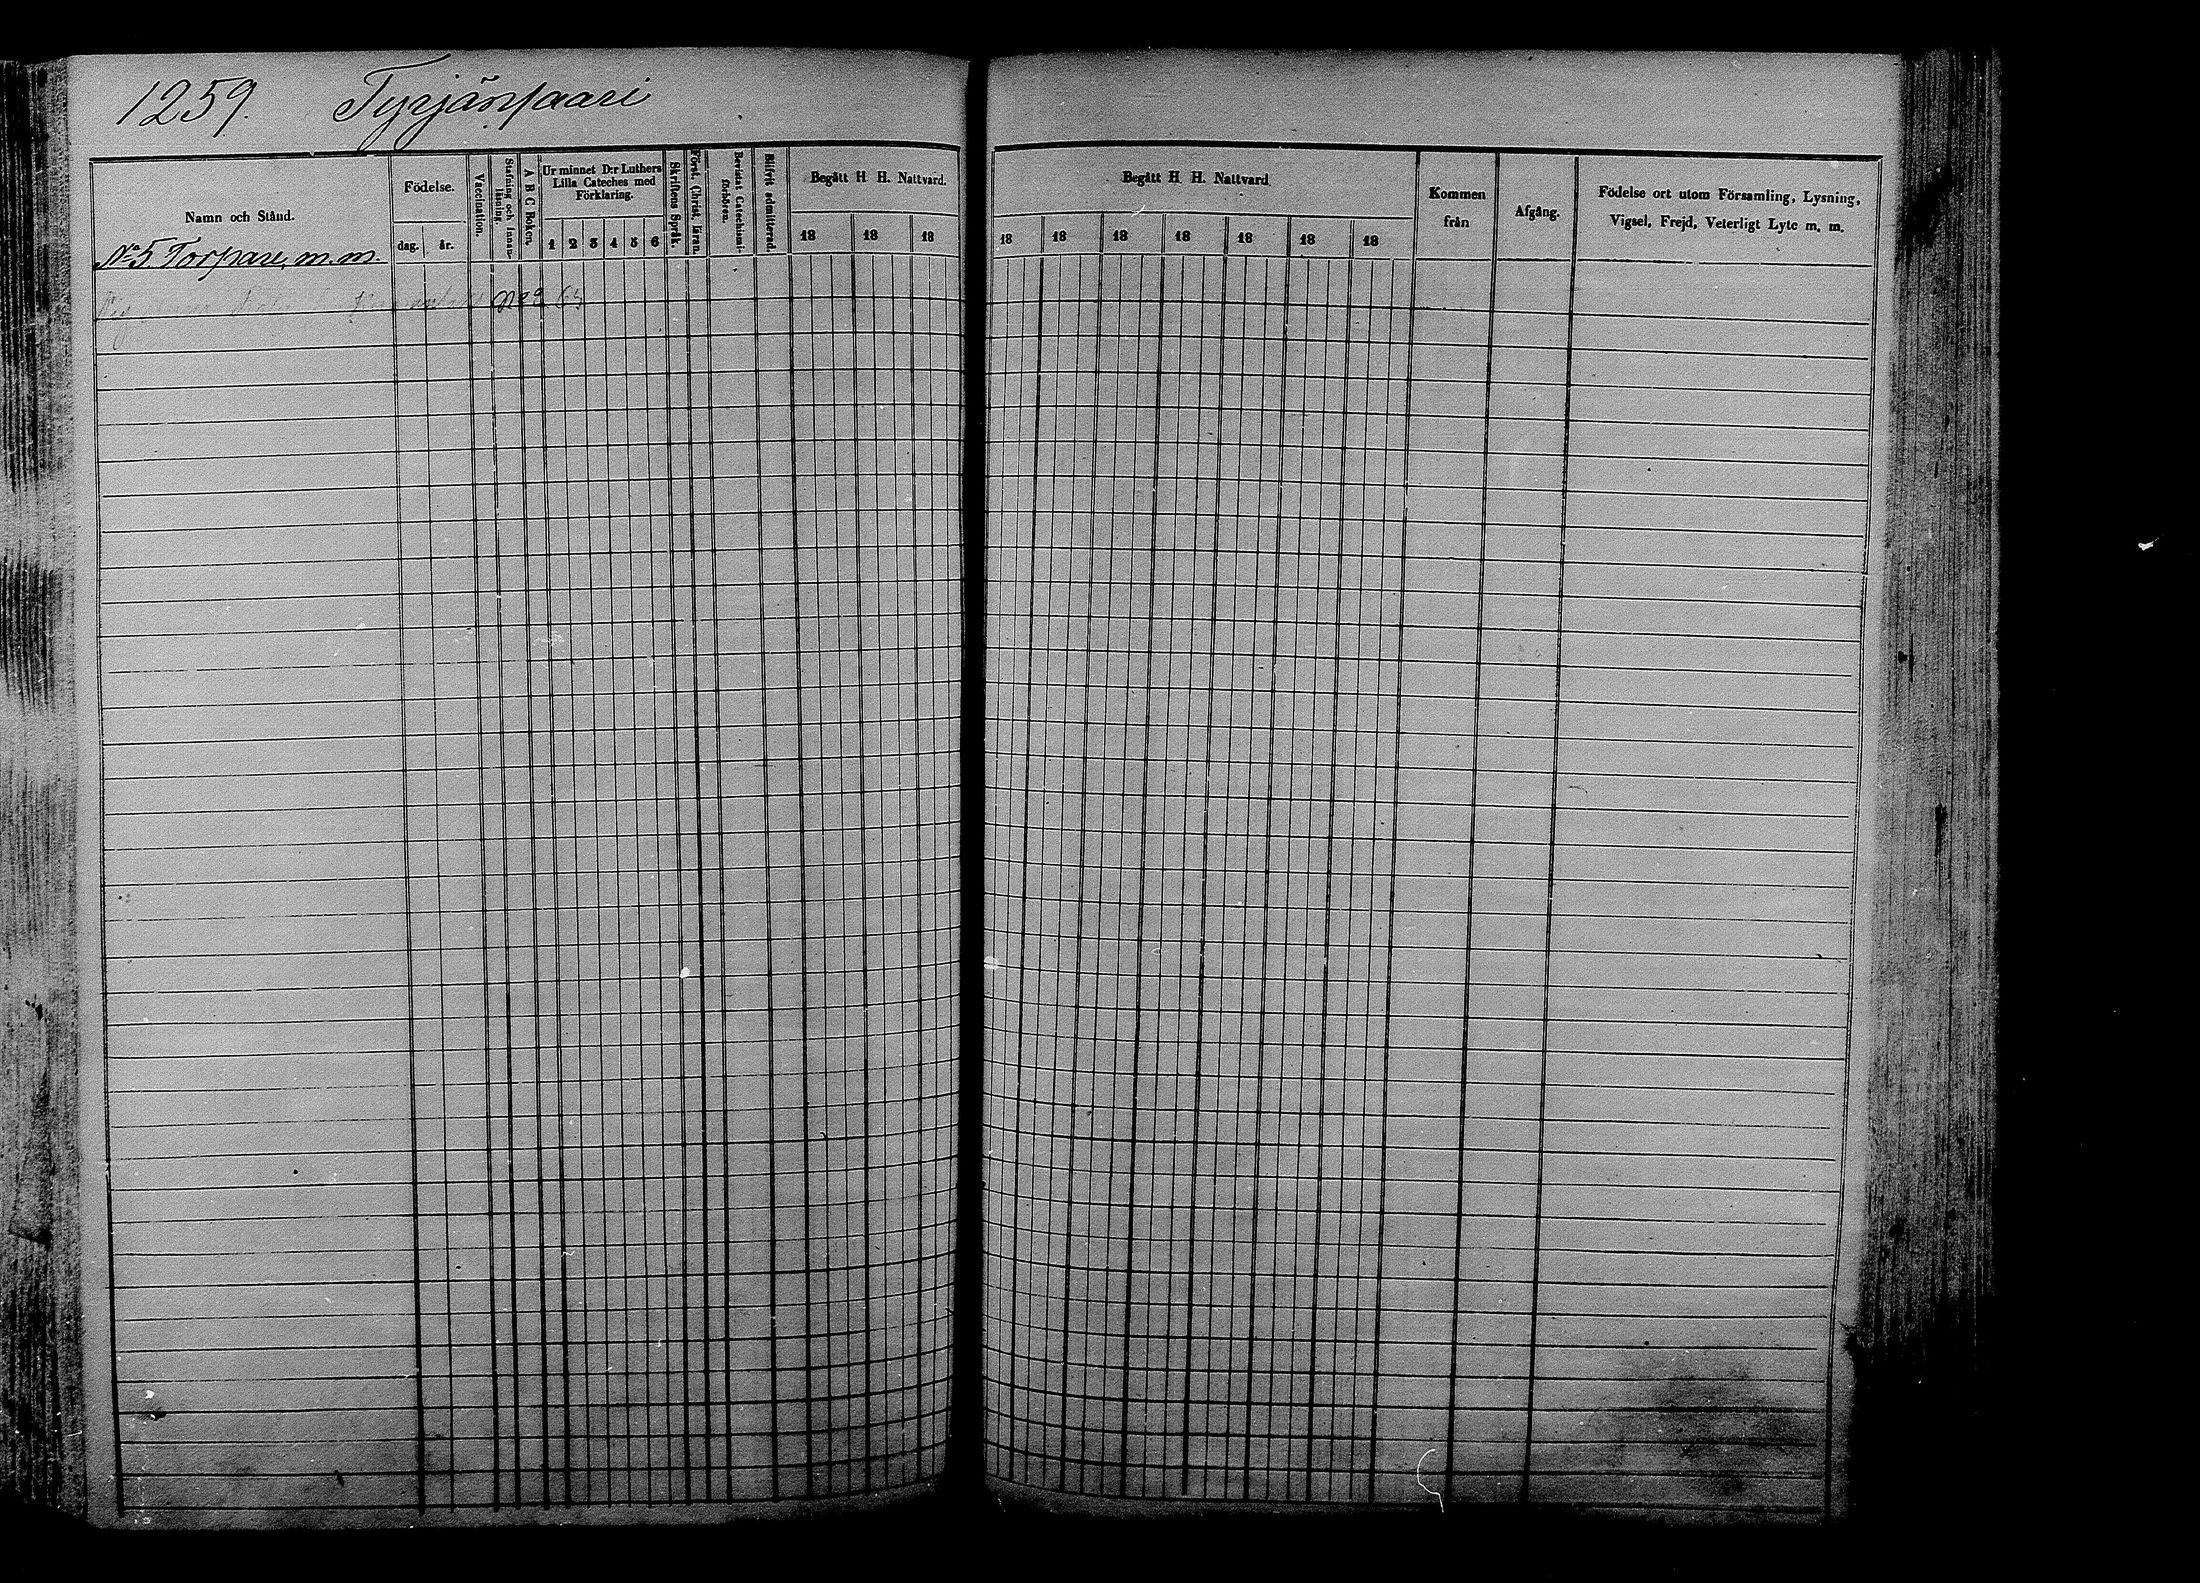 1259. Tyrjänsaari
Namn och Stånd.
Födelse.
dag. år.
Vaccination.
Stafning och Innan-
läsning.
A B C Boken.
Ur minnet D:r Luthers
Lilla Cateches med
Förklaring.
1 2 3 4 5 6
Skriftens Språk.
Först. Christ. läran.
Bevistat Catechismi-
förhören.
Blifvit admitterad.
Begått H H. Nattvard.
18 18 18
Nº 5. Torpare, m. m.
Begått H. H. Nattvard
18 18 18 18 18 18 18
Kommen
från
Afgång.
Födelse ort utom Församling, Lysning,
Vigsel, Frejd, Veterligt Lyte m. m.